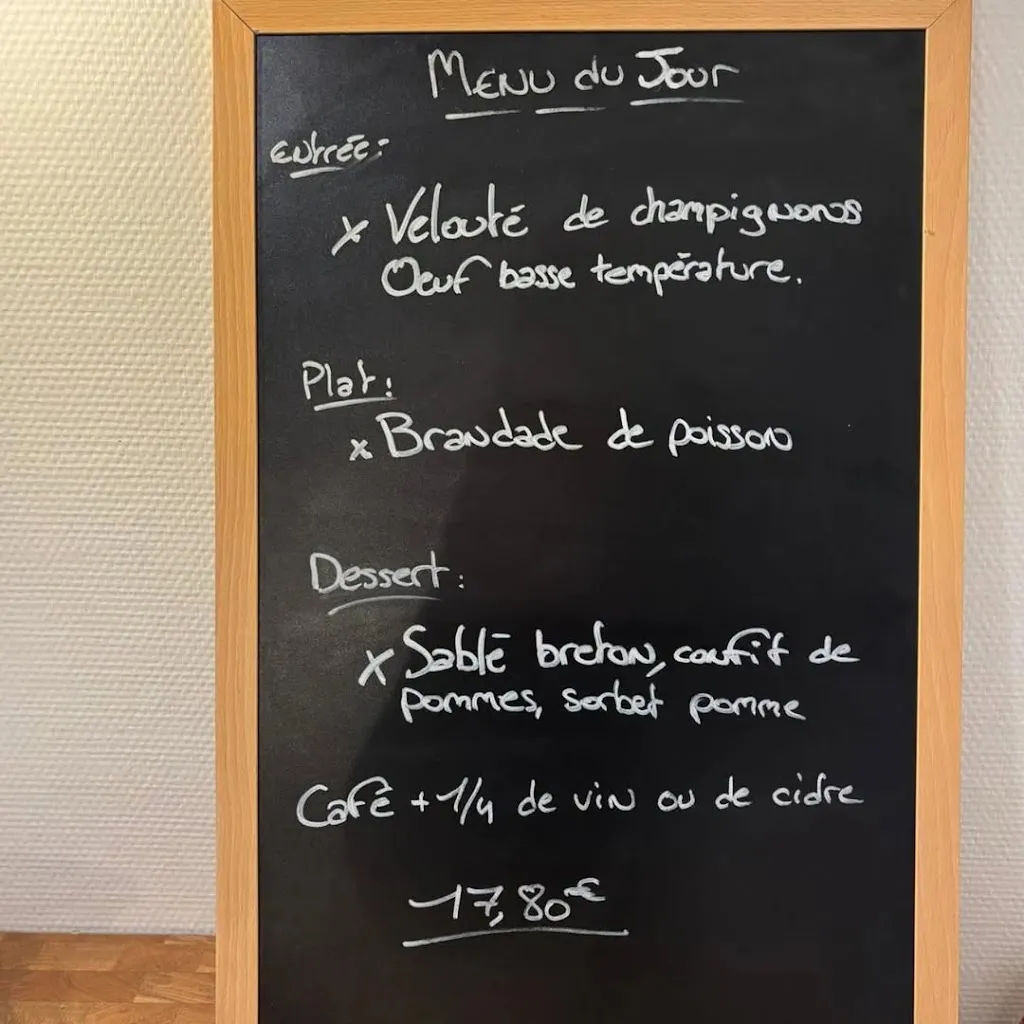 Menu du Jour
Entrée:
x Velouté de champignons
Oeuf basse température.
Plat:
x Brandade de poisson
Dessert:
x Sablé breton, confit de
pommes, sorbet pomme
Café + 1/4 de vin ou de cidre
17,80€